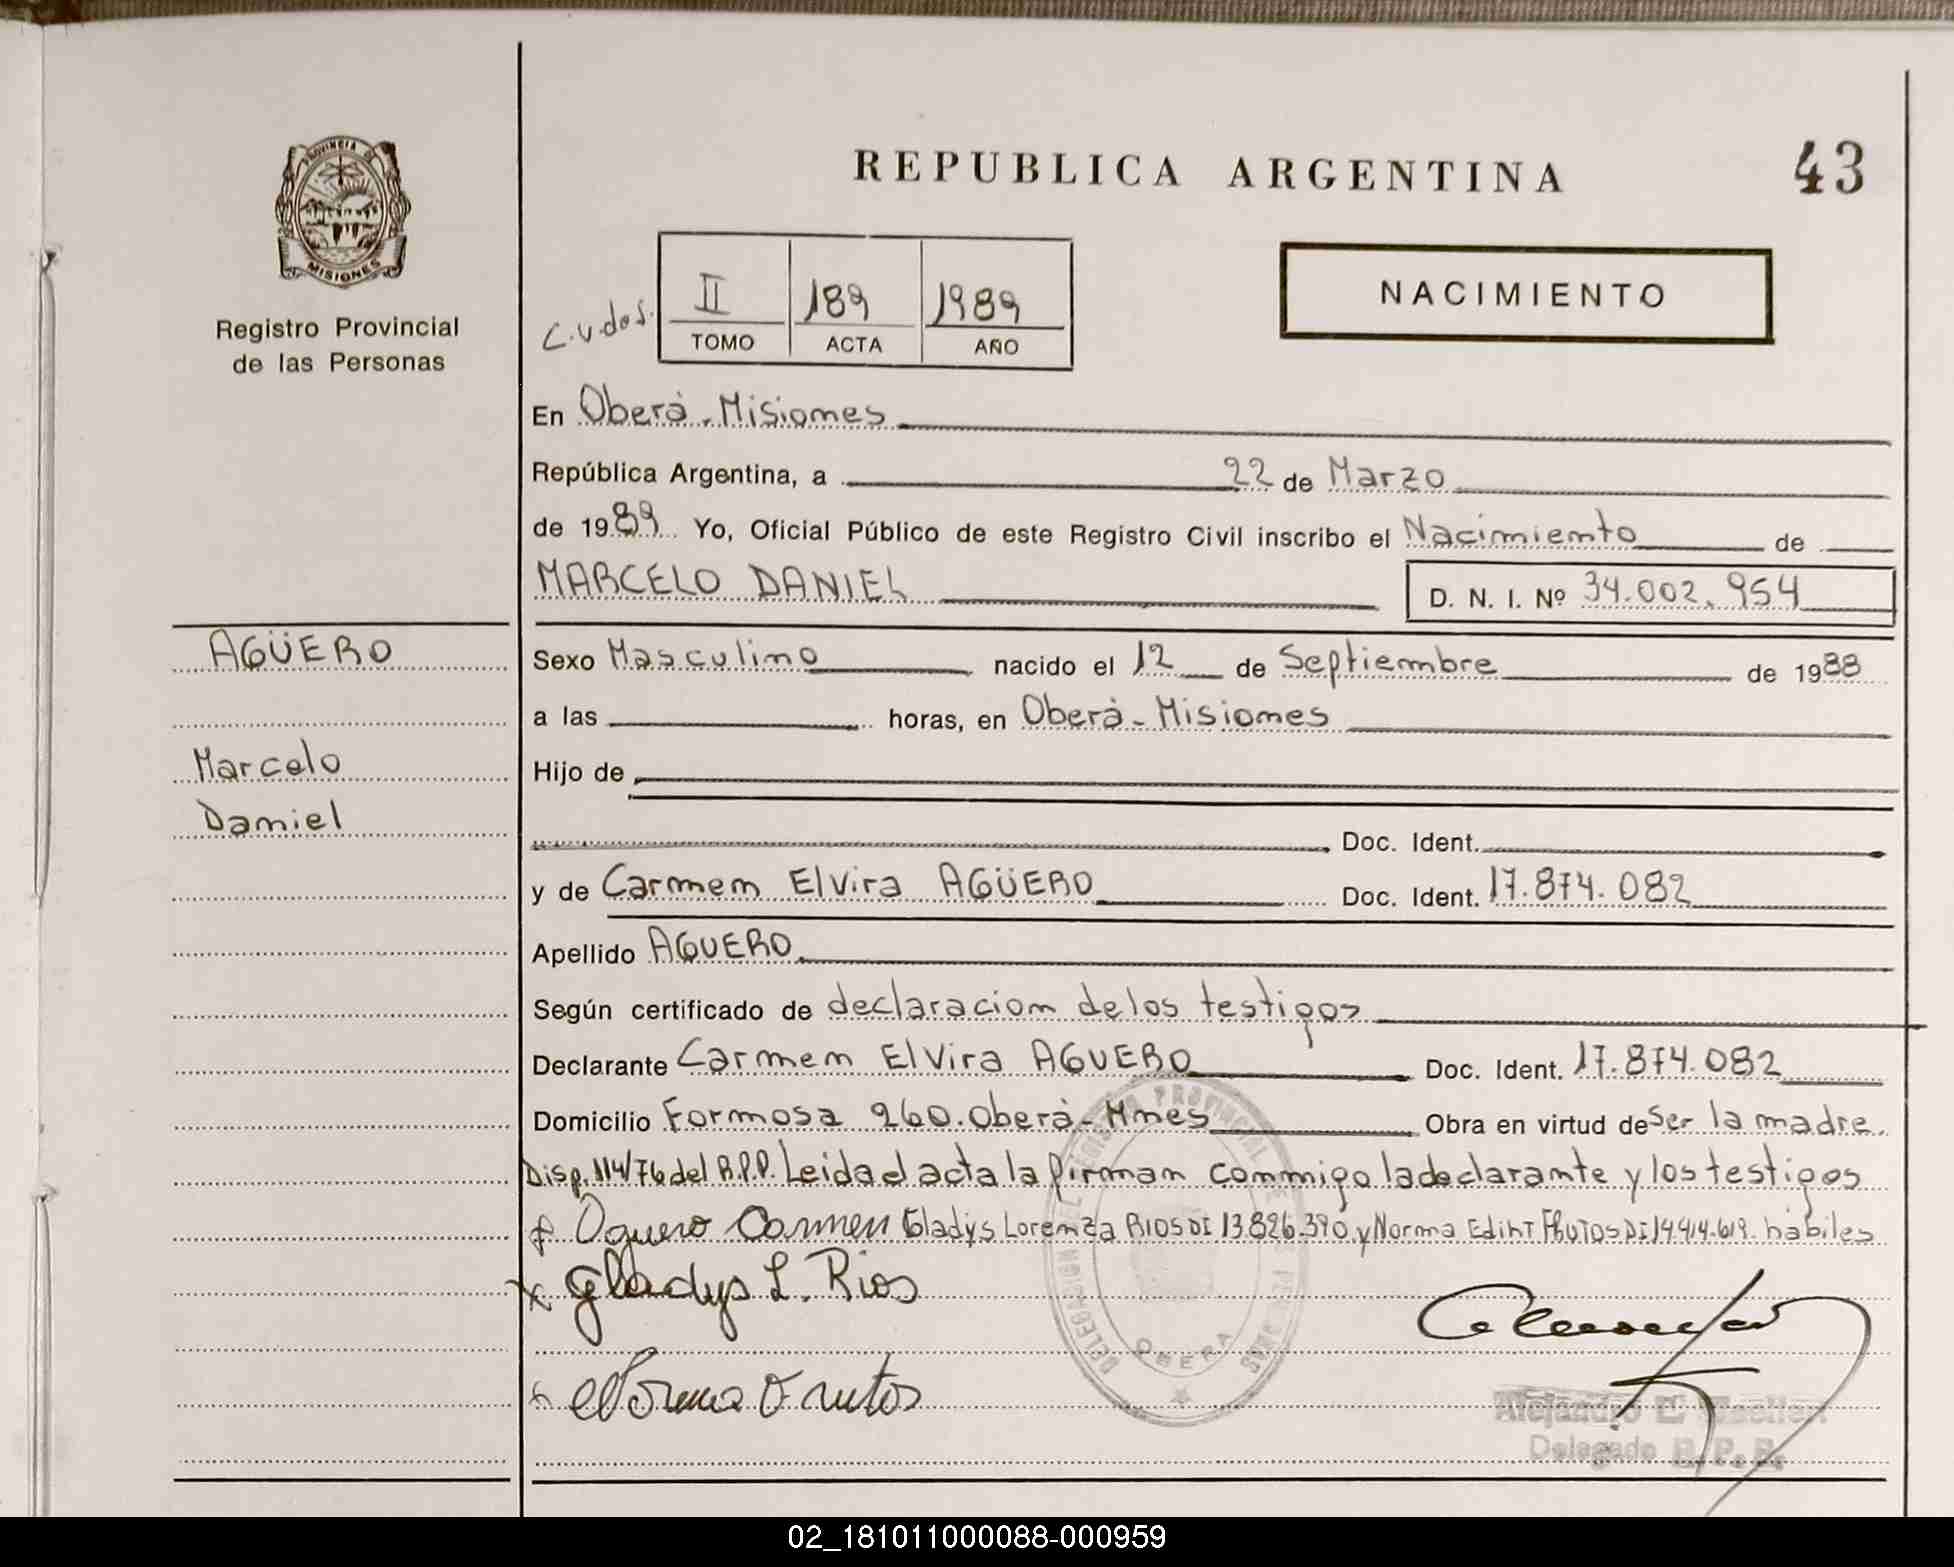 REPUBLICA ARGENTINA
43
PROVINCIA DE
MISIONES
Registro Provincial
de las Personas
II 189 1989
TOMO ACTA AÑO
NACIMIENTO
En Oberá - Misiones
República Argentina, a 22 de Marzo
de 1989 Yo, Oficial Público de este Registro Civil inscribo el Nacimiento de
MARCELO DANIEL D. N. I. Nº 34.002.954
AGÜERO
Marcelo
Daniel
Sexo Masculino nacido el 12 de Septiembre de 1988
a las horas, en Oberá - Misiones
Hijo de
Doc. Ident.
y de Carmen Elvira AGÜERO Doc. Ident. 17.874.082
Apellido AGUERO
Según certificado de declaracion de los testigos
Declarante Carmen Elvira AGUERO Doc. Ident. 17.874.082
Domicilio Formosa 260. Oberá - Mnes Obra en virtud de Ser la madre.
Disp. 114/76 del R.P.P. Leida el acta la firman conmigo la declarante y los testigos
Oguero Carmen Gladys Lorenza RIOS DI 13.826.390 y Norma Ediht FRUTOS DI 14.414.619. hábiles
Gladys L. Rios
Norma Frutos
DELEGACION DEL REGISTRO PROVINCIAL DE LAS PERSONAS
OBERA
Alejandro E.
Delegado R. P. P.
02_181011000088-000959